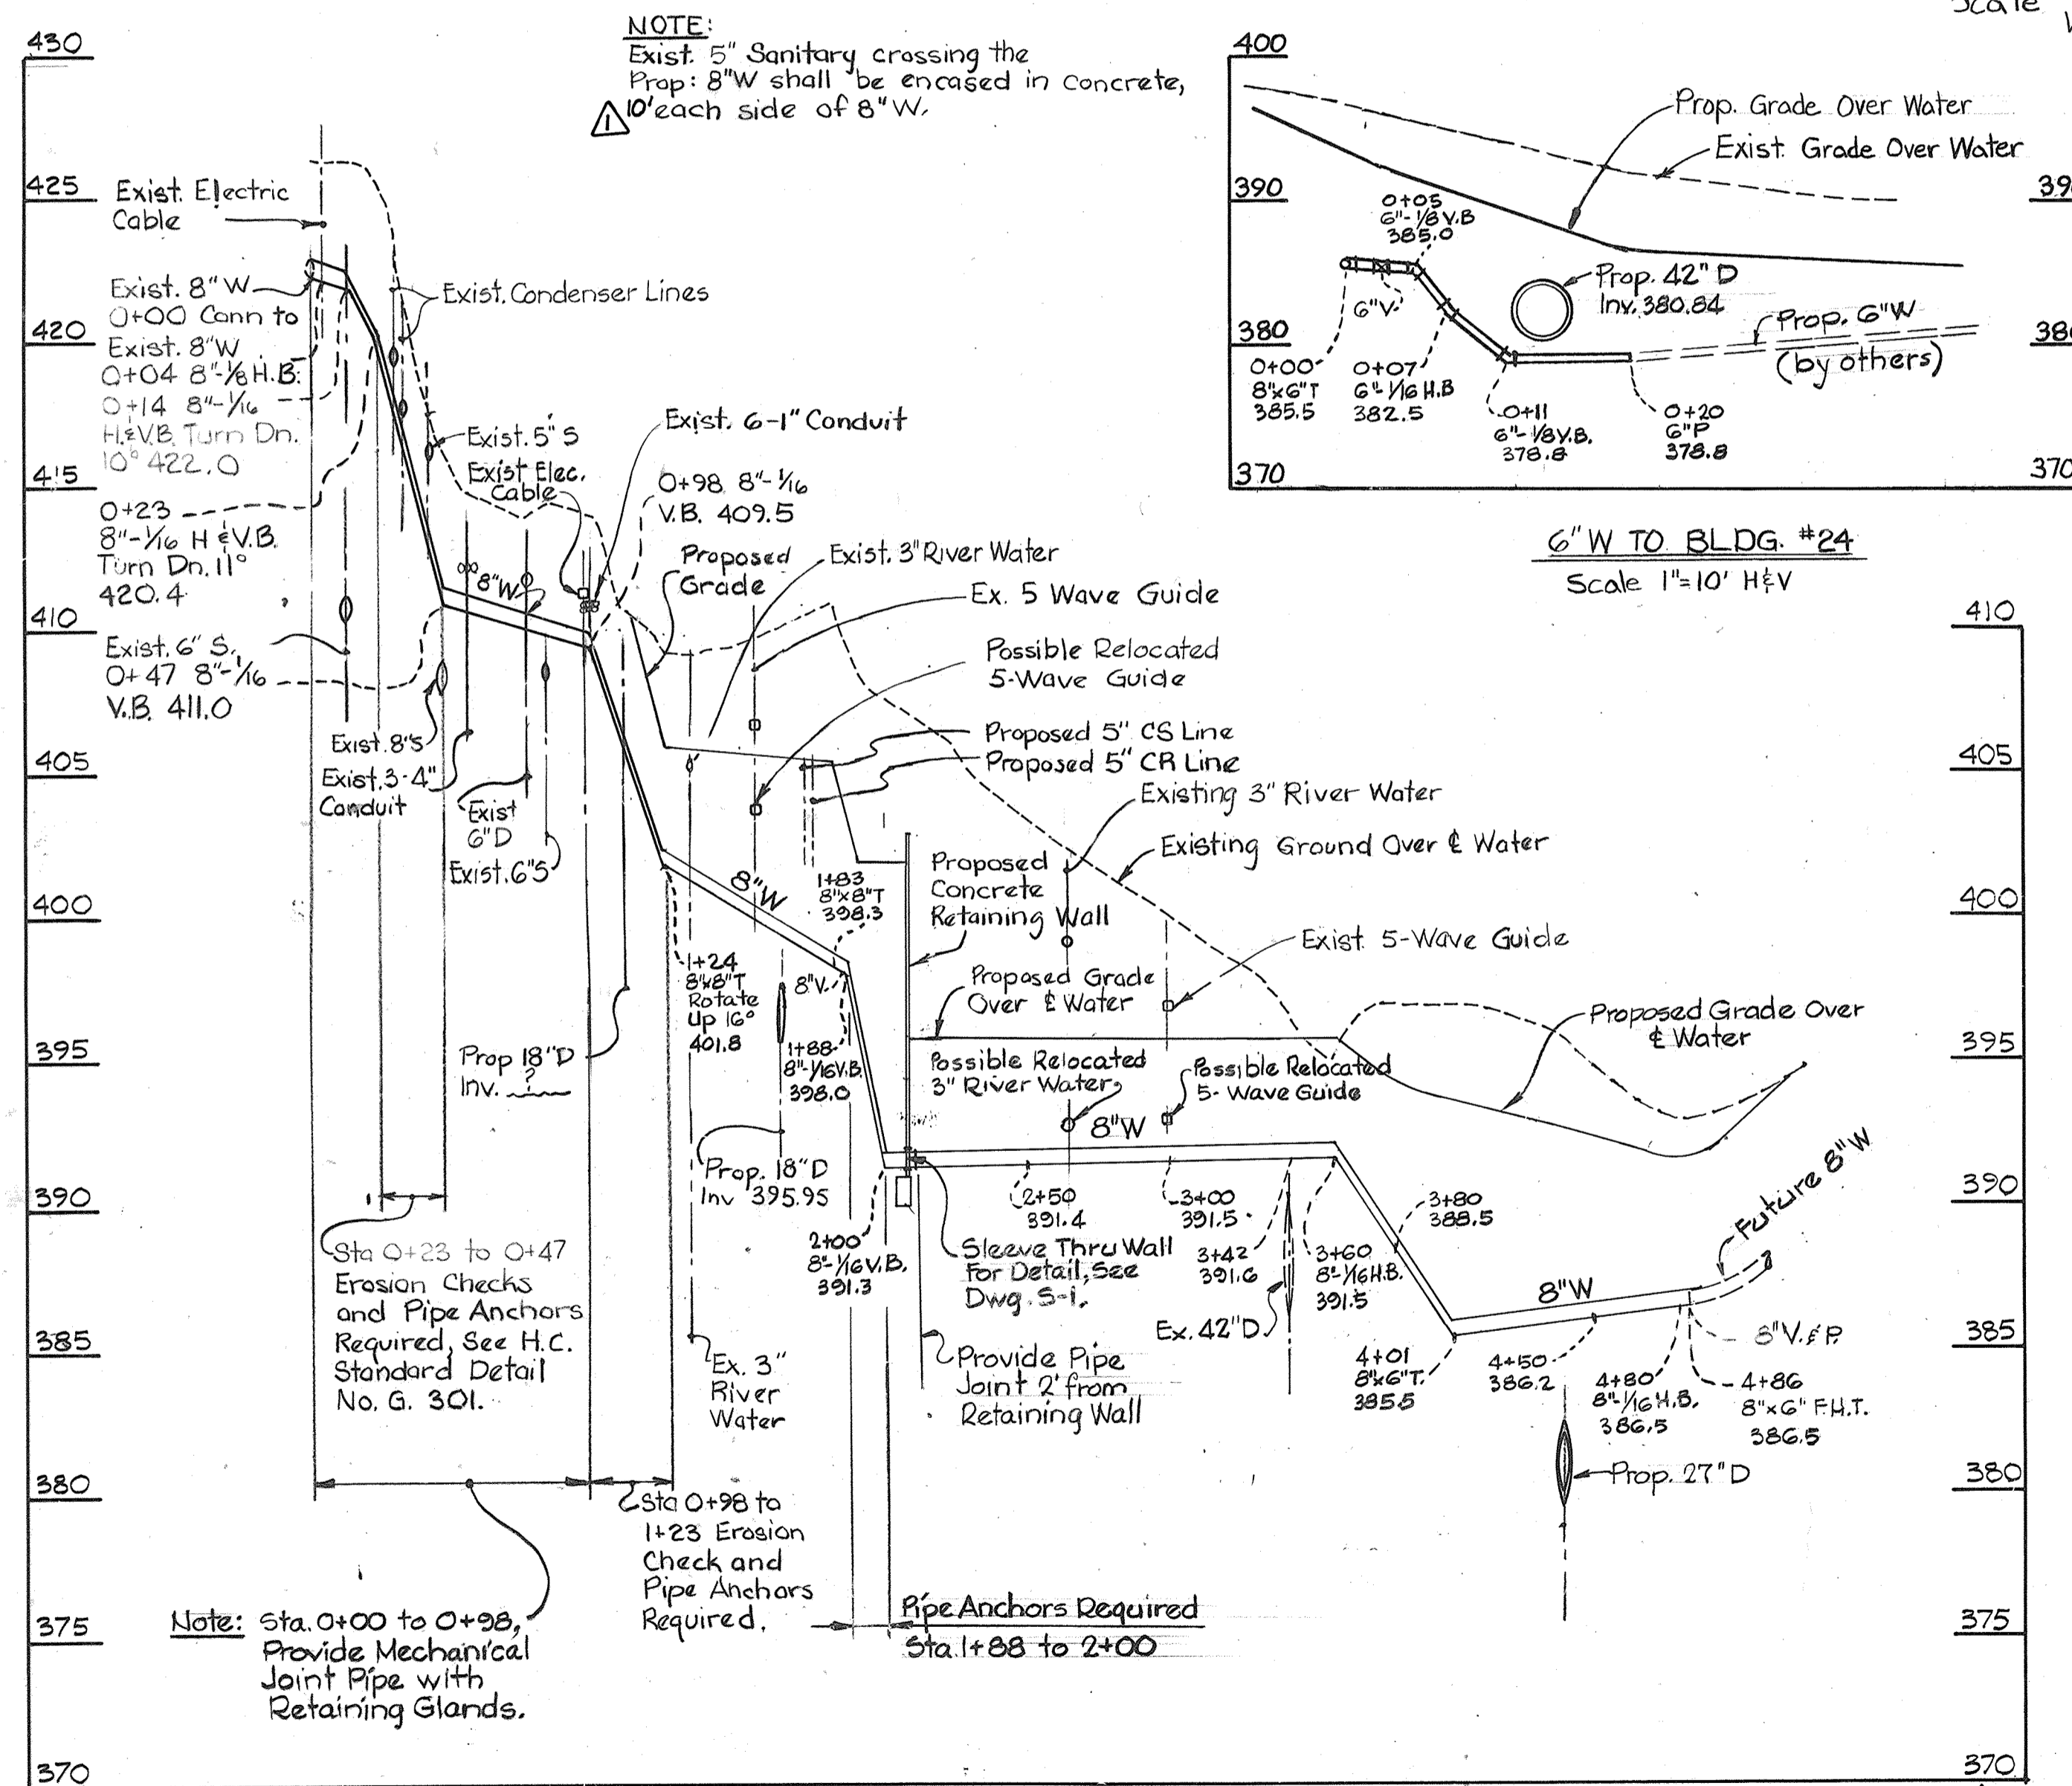 Scale
NOTE:
Exist. 5" Sanitary crossing the
Prop: 8"W shall be encased in concrete,
1 10' each side of 8" W.
430
425
420
415
410
405
400
395
390
385
380
375
370
Exist. Electric
Cable
Exist. 8" W
0+00 Conn to
Exist. 8"W
0+04 8"-1/8 H.B.
0+14 8"-1/16
H.&V.B. Turn Dn.
10° 422.0
0+23
8"-1/16 H & V.B.
Turn Dn. 11°
420.4
Exist. 6" S.
0+47 8"-1/16
V.B. 411.0
Exist. Condenser Lines
Exist. 5" S
Exist Elec.
Cable
Exist. 6-1" Conduit
0+98 8"-1/16
V.B. 409.5
8"W
Proposed
Grade
Exist. 3" River Water
Ex. 5 Wave Guide
Possible Relocated
5-Wave Guide
Proposed 5" CS Line
Proposed 5" CR Line
Existing 3" River Water
Existing Ground Over ℄ Water
Exist. 8"S
Exist. 3-4"
Conduit
Exist
6"D
Exist. 6"S
8"W
1+83
8"x8"T
398.3
Proposed
Concrete
Retaining Wall
Exist. 5-Wave Guide
1+24
8"x8"T
Rotate
Up 16°
401.8
8"V.
1+88
8"-1/16 V.B.
398.0
Proposed Grade
Over ℄ Water
Proposed Grade Over
℄ Water
Prop 18"D
Inv. ?
Possible Relocated
3" River Water
Possible Relocated
5-Wave Guide
8"W
Prop. 18"D
Inv 395.95
2+00
8"-1/16 V.B.
391.3
2+50
391.4
3+00
391.5
3+42
391.6
3+60
8"-1/16 H.B.
391.5
3+80
388.5
Future 8"W
Sleeve Thru Wall
For Detail, See
Dwg. S-1.
Ex. 42"D
8"W
8"V. & P.
4+01
8"x6"T.
385.5
4+50
386.2
4+80
8"-1/16 H.B.
386.5
4+86
8"x6" F.H.T.
386.5
Prop. 27"D
Sta 0+23 to 0+47
Erosion Checks
and Pipe Anchors
Required, See H.C.
Standard Detail
No. G. 301.
Ex. 3"
River
Water
Provide Pipe
Joint 2' from
Retaining Wall
Sta 0+98 to
1+23 Erosion
Check and
Pipe Anchors
Required.
Pipe Anchors Required
Sta. 1+88 to 2+00
Note: Sta. 0+00 to 0+98,
Provide Mechanical
Joint Pipe with
Retaining Glands.
400
390
380
370
Prop. Grade Over Water
Exist. Grade Over Water
0+05
6"-1/8 V.B
385.0
6"V.
Prop. 42" D
Inv. 380.84
Prop. 6"W
(by others)
0+00
8"x6"T
385.5
0+07
6"-1/16 H.B
382.5
0+11
6"-1/8 V.B.
378.8
0+20
6"P
378.8
370
6"W TO BLDG. #24
Scale 1"=10' H&V
410
405
400
395
390
385
380
375
370